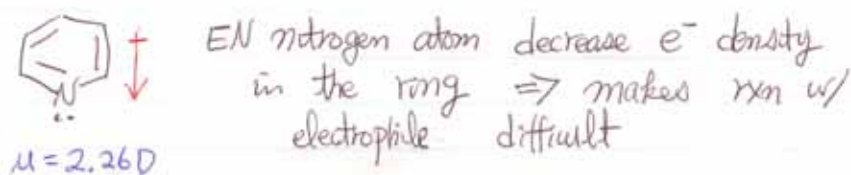 EN nitrogen atom decrease e⁻ density
in the ring ⇒ makes rxn w/
electrophile difficult
N
μ = 2.26D